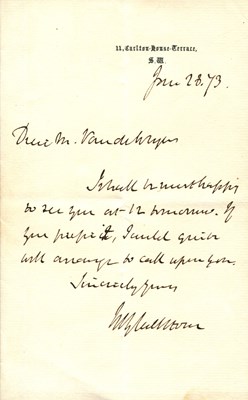 11, Carlton-House-Terrace,
S.W.
28. 73.
Dear M. Van de Weyer
I shall be most happy
to see you at 12 tomorrow. If
you prefer it, I could quite
well arrange to call upon you.
Sincerely yours
W E Gladstone